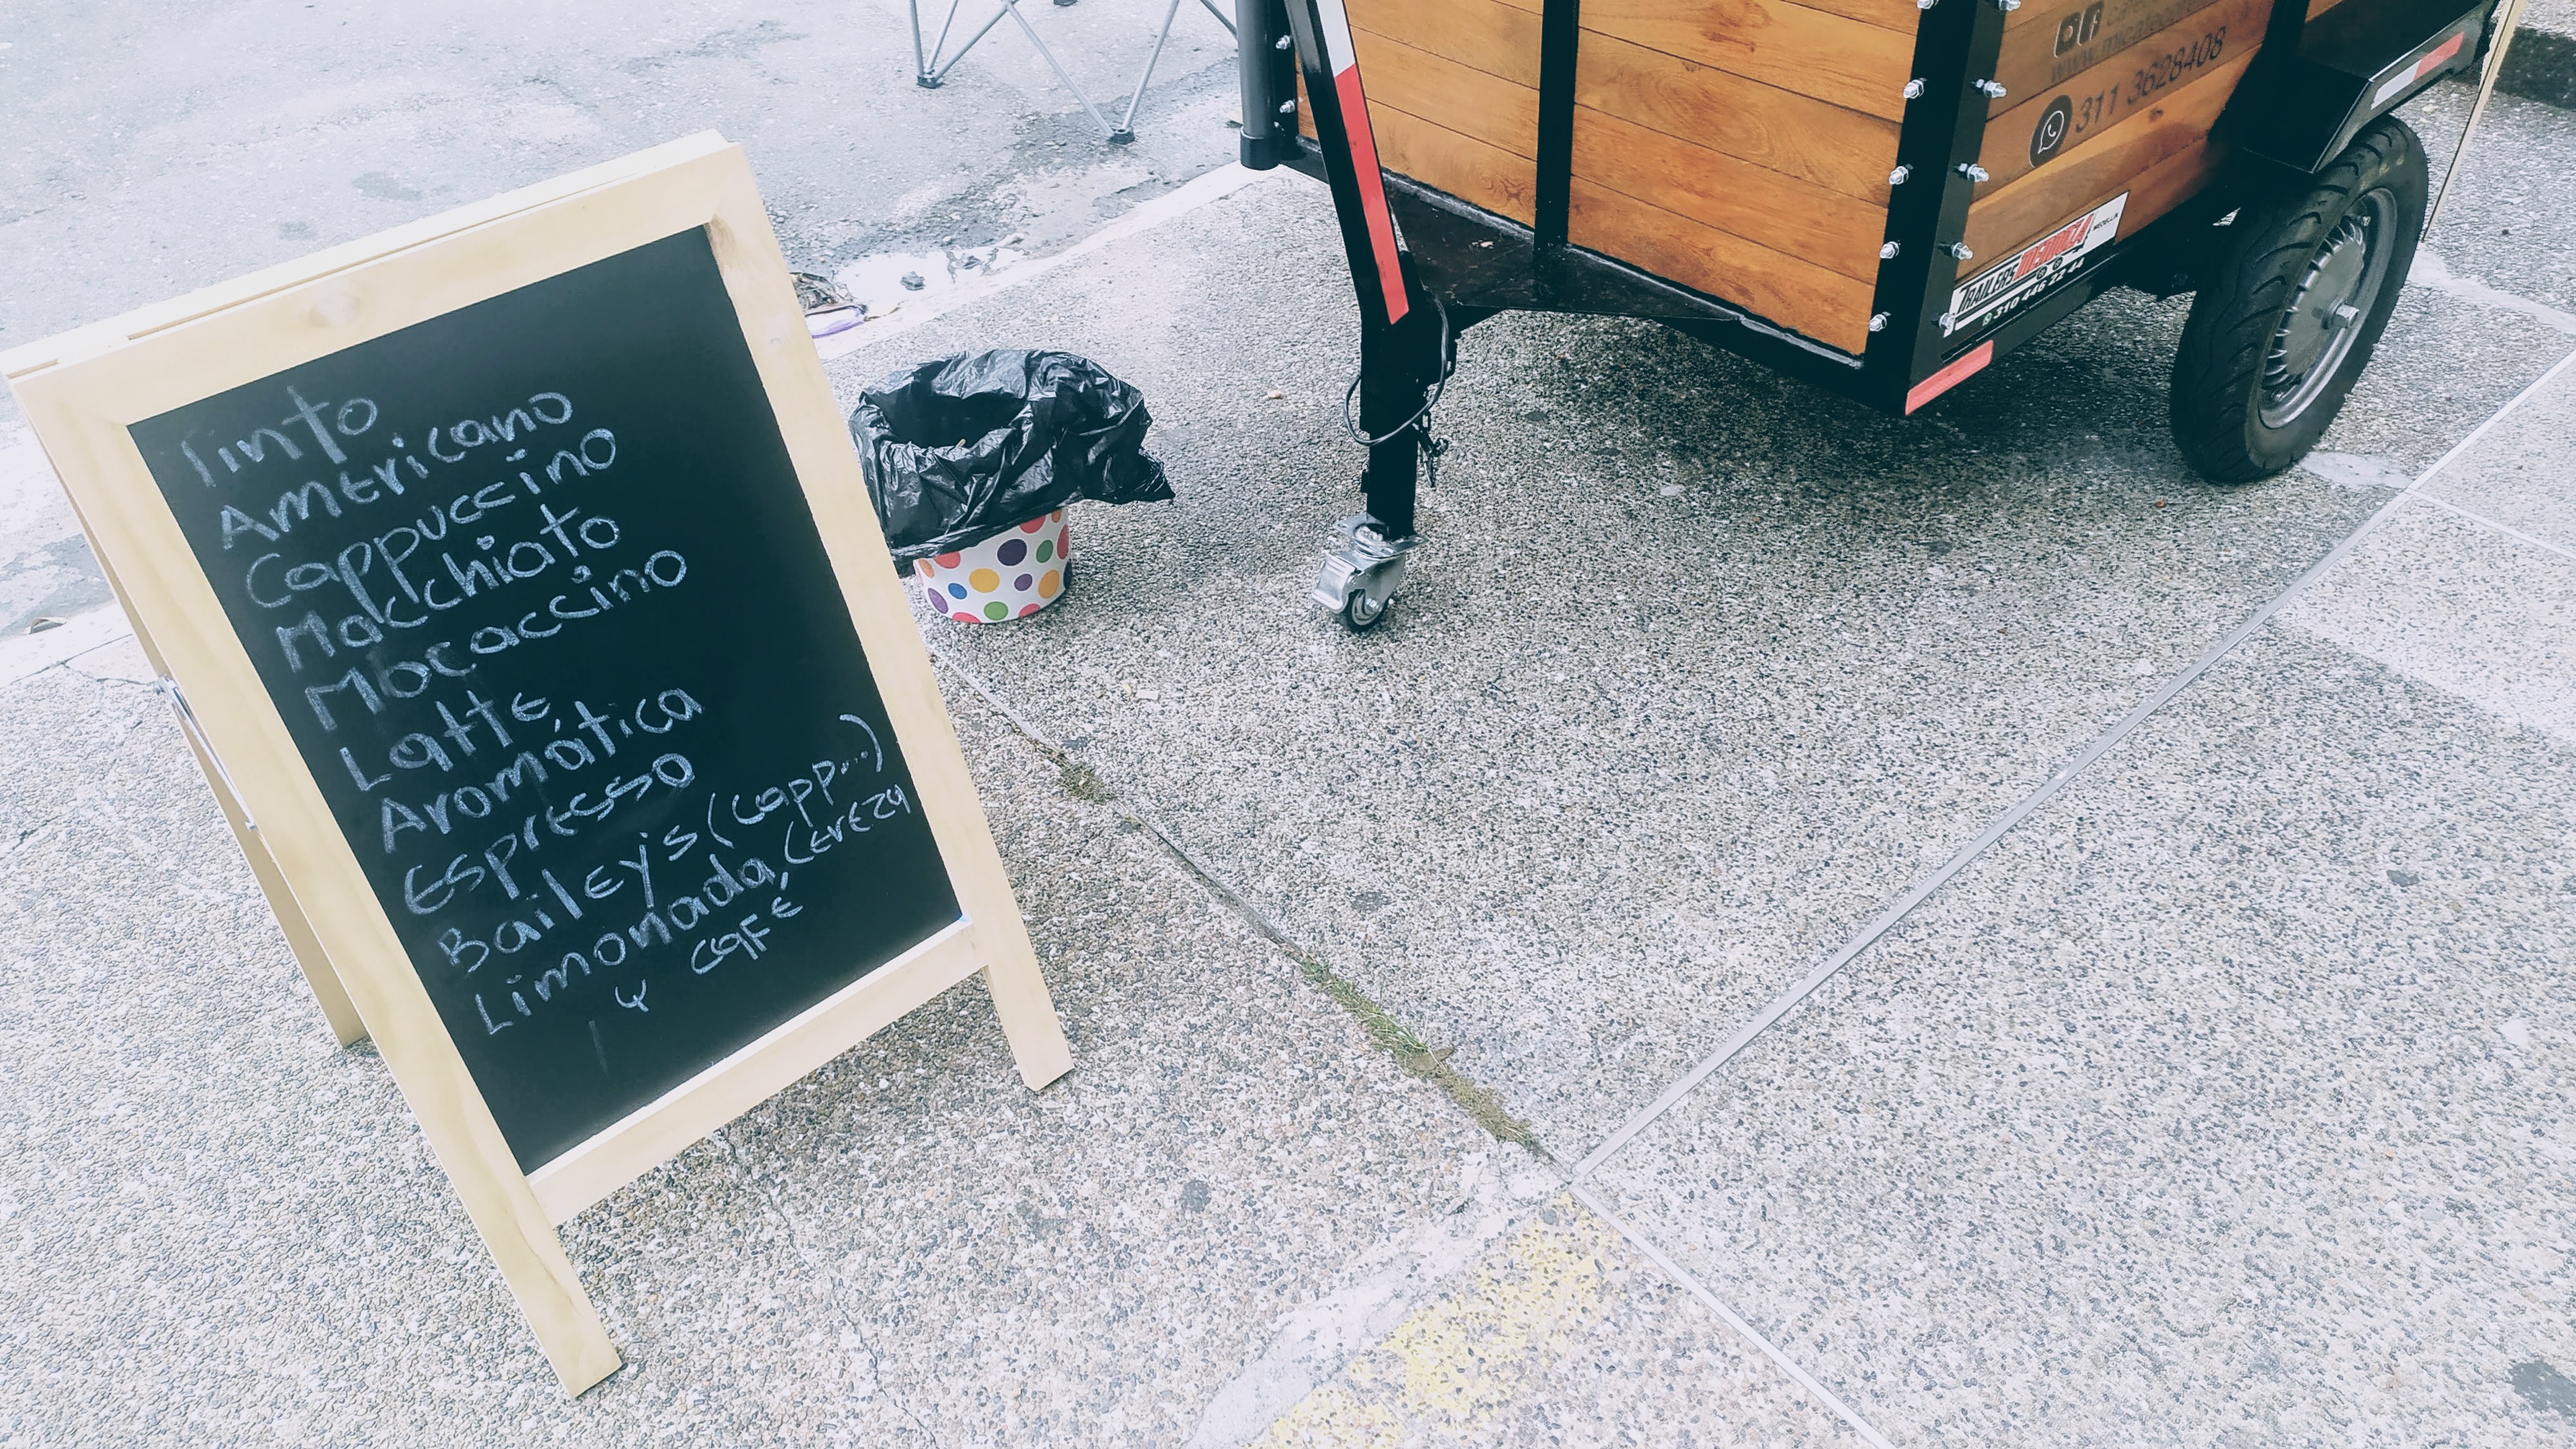 Tinto
Americano
Cappuccino
Macchiato
Mocaccino
Latte
Aromática
Espresso
Baileys (capp...)
Limonada, cereza
y café
311 3628408
TRAILERS MENDOZA
310 446 22 44